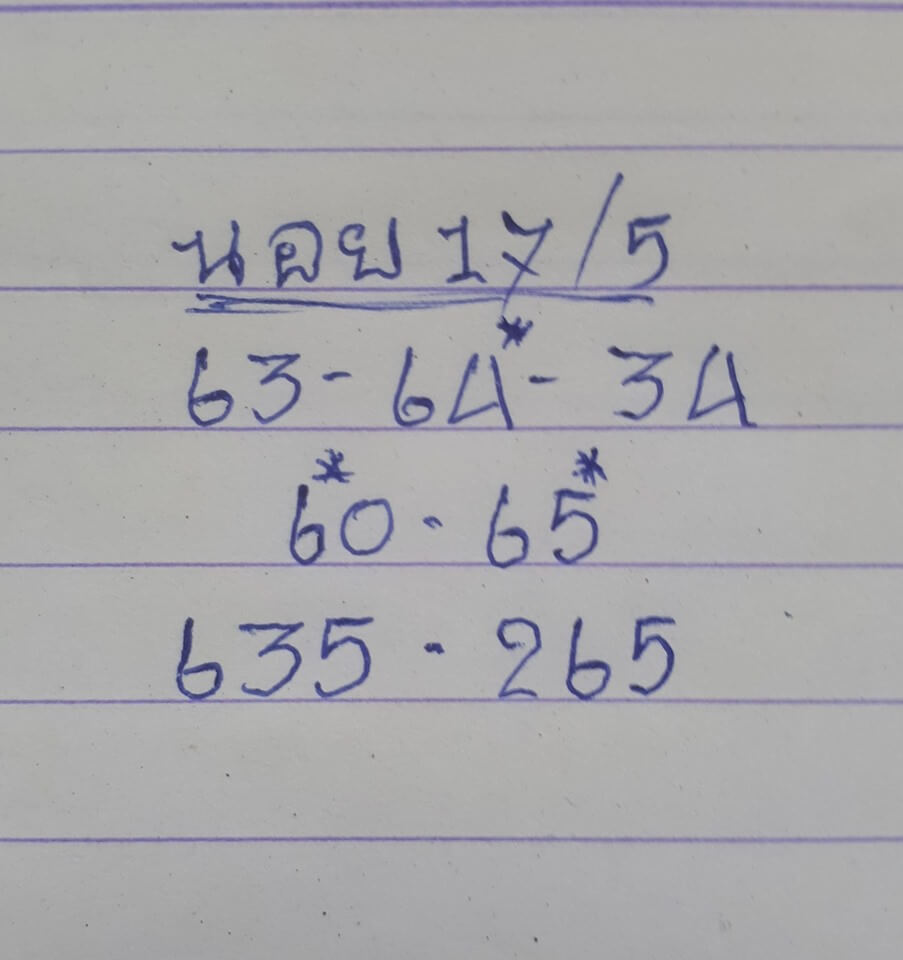 นอย 17/5
63 - 64* - 34
60* - 65*
635 - 265